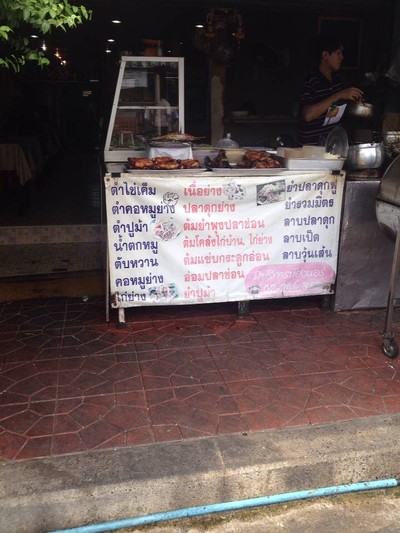 ตำไข่เค็ม
ตำคอหมูย่าง
ตำปูม้า
น้ำตกหมู
ตับหวาน
คอหมูย่าง
ไก่ย่าง
เนื้อย่าง
ปลาดุกย่าง
ต้มยำพุงปลาช่อน
ต้มโคล้งไก่บ้าน, ไก่ย่าง
ต้มแซ่บกระดูกอ่อน
อ่อมปลาช่อน
ยำปูม้า
ยำปลาดุกฟู
ยำรวมมิตร
ลาบปลาดุก
ลาบเป็ด
ลาบวุ้นเส้น